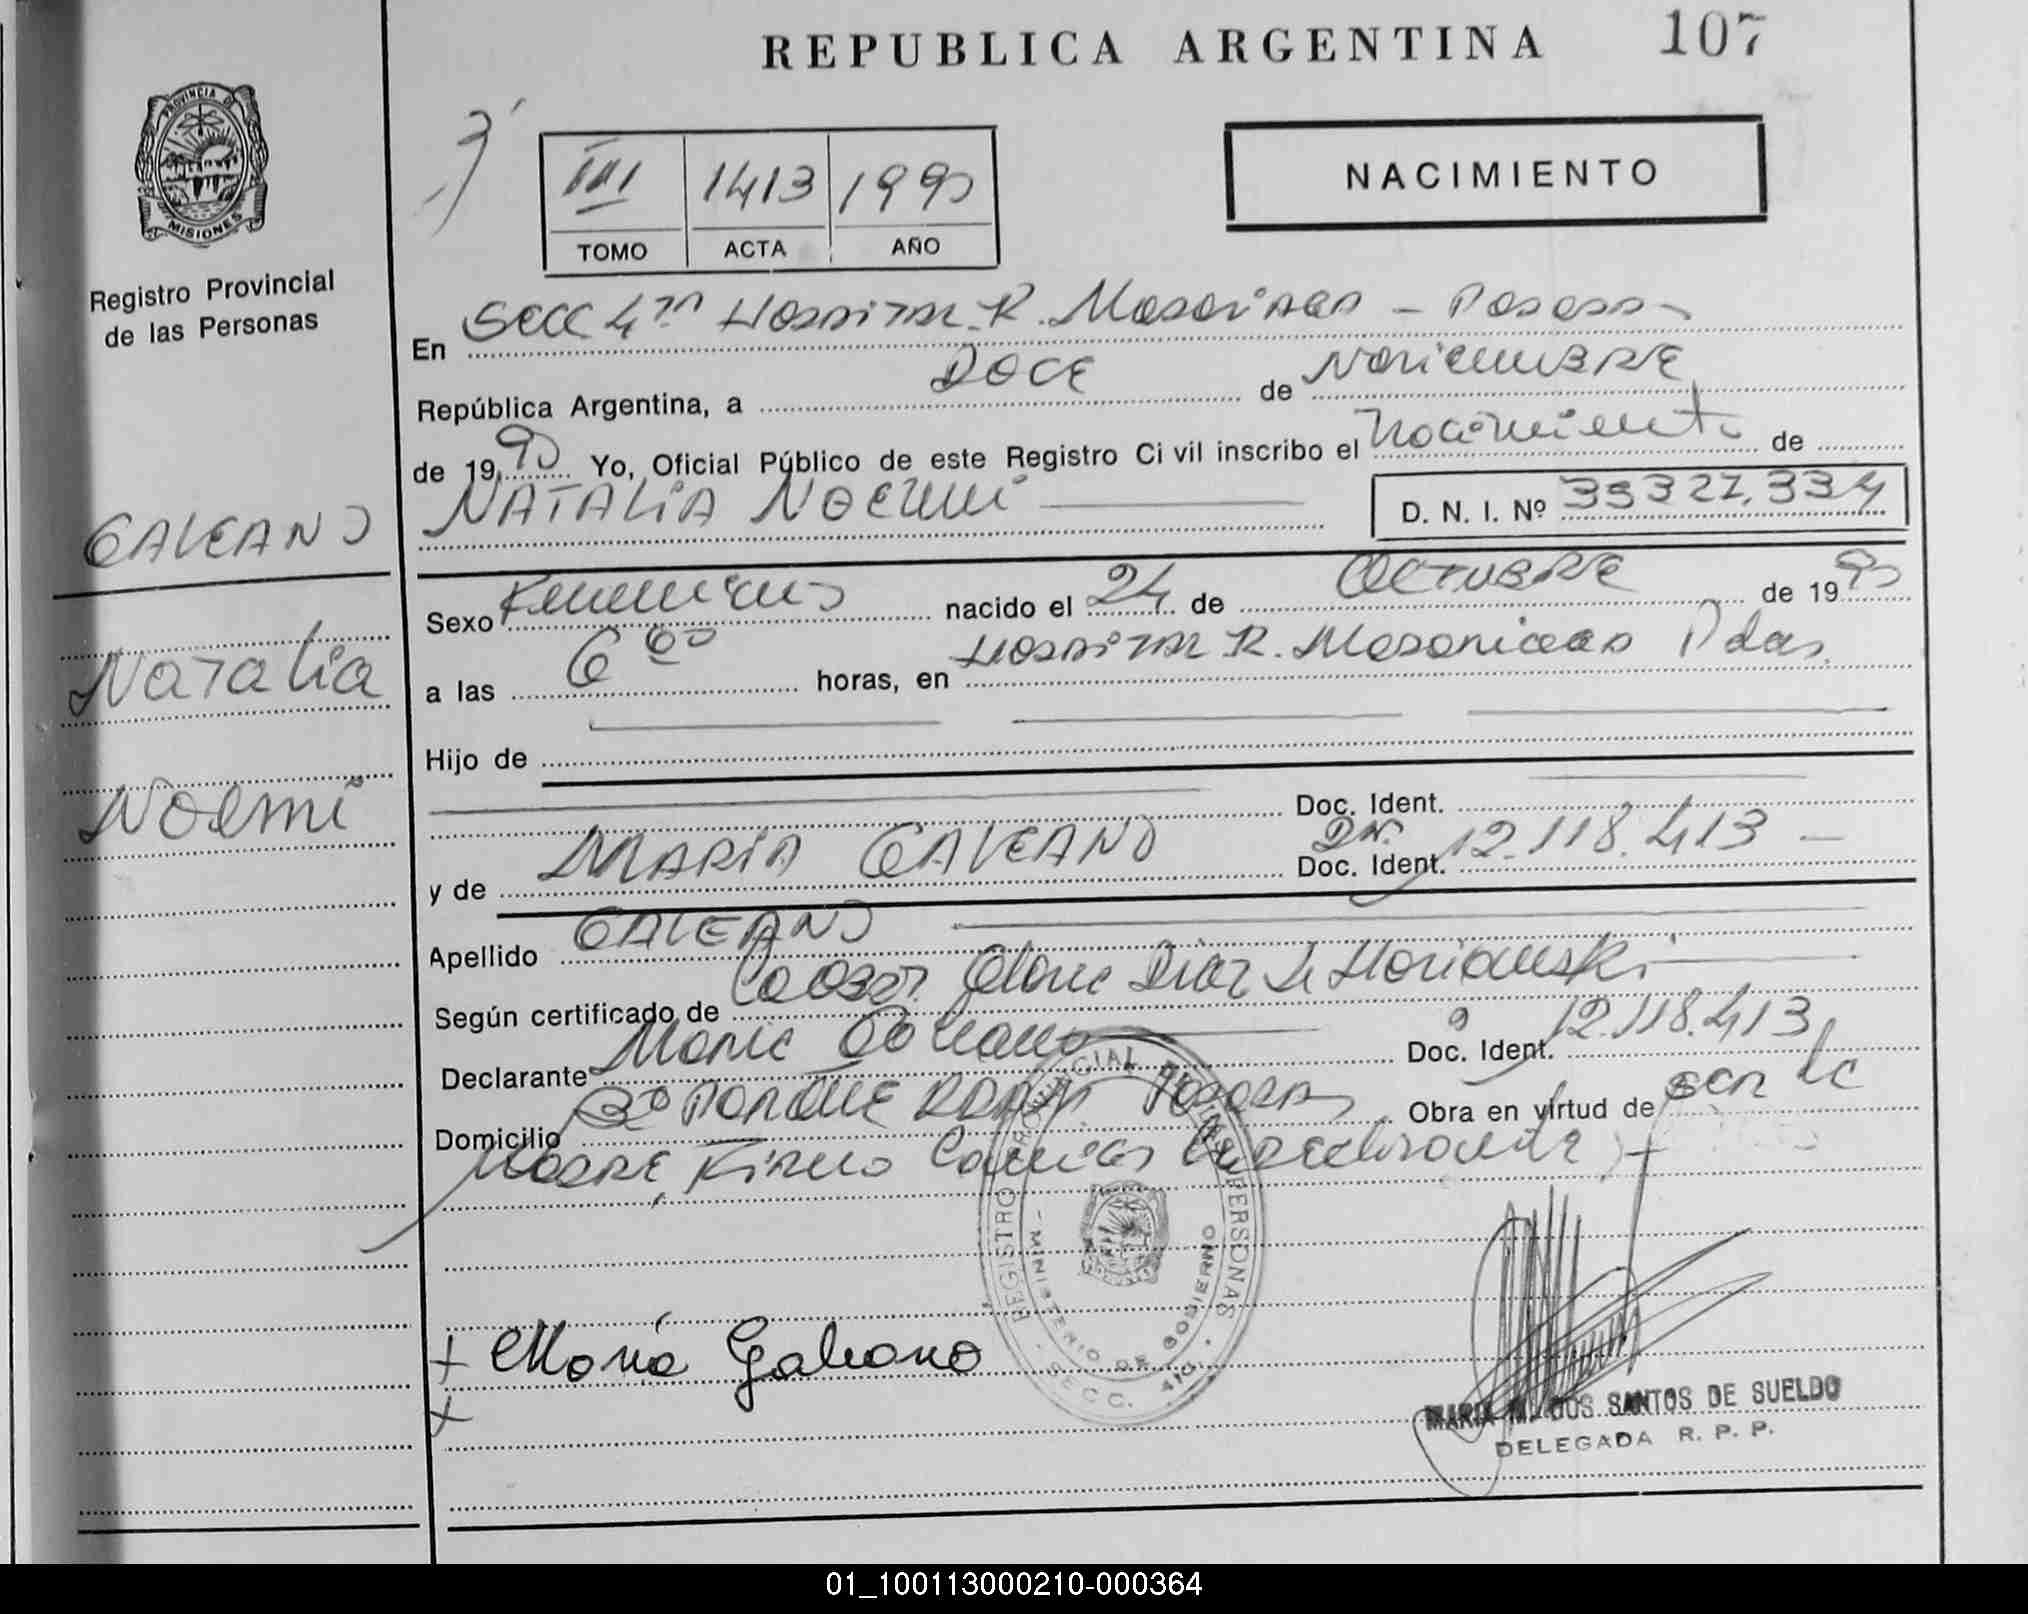 REPUBLICA ARGENTINA 107
PROVINCIA DE
MISIONES
Registro Provincial
de las Personas
III 1413 1990
TOMO ACTA AÑO
NACIMIENTO
En Secc 4ta Hospital R. Madariaga - Posadas
República Argentina, a DOCE de NOVIEMBRE
de 1990 Yo, Oficial Público de este Registro Civil inscribo el Nacimiento de
NATALIA NOEMI D. N. I. Nº 35327.334
GALEANO
Natalia
Noemi
Sexo Femenino nacido el 24 de OCTUBRE de 1990
a las 6 00 horas, en Hospital R. Madariaga Pdas.
Hijo de
Doc. Ident.
y de MARIA GALEANO Doc. Ident. 12.118.413 -
Apellido GALEANO
Según certificado de Diaz de
Declarante Maria Galeano Doc. Ident. 12.118.413
Domicilio Bº PARQUE ADAM Posadas Obra en virtud de ser la
MADRE, Firma la declarante
REGISTRO PROVINCIAL DE LAS PERSONAS
- MINISTERIO DE GOBIERNO -
SECC. 4ta.
+ Maria Galeano
+
MARIA M. DOS SANTOS DE SUELDO
DELEGADA R. P. P.
01_100113000210-000364